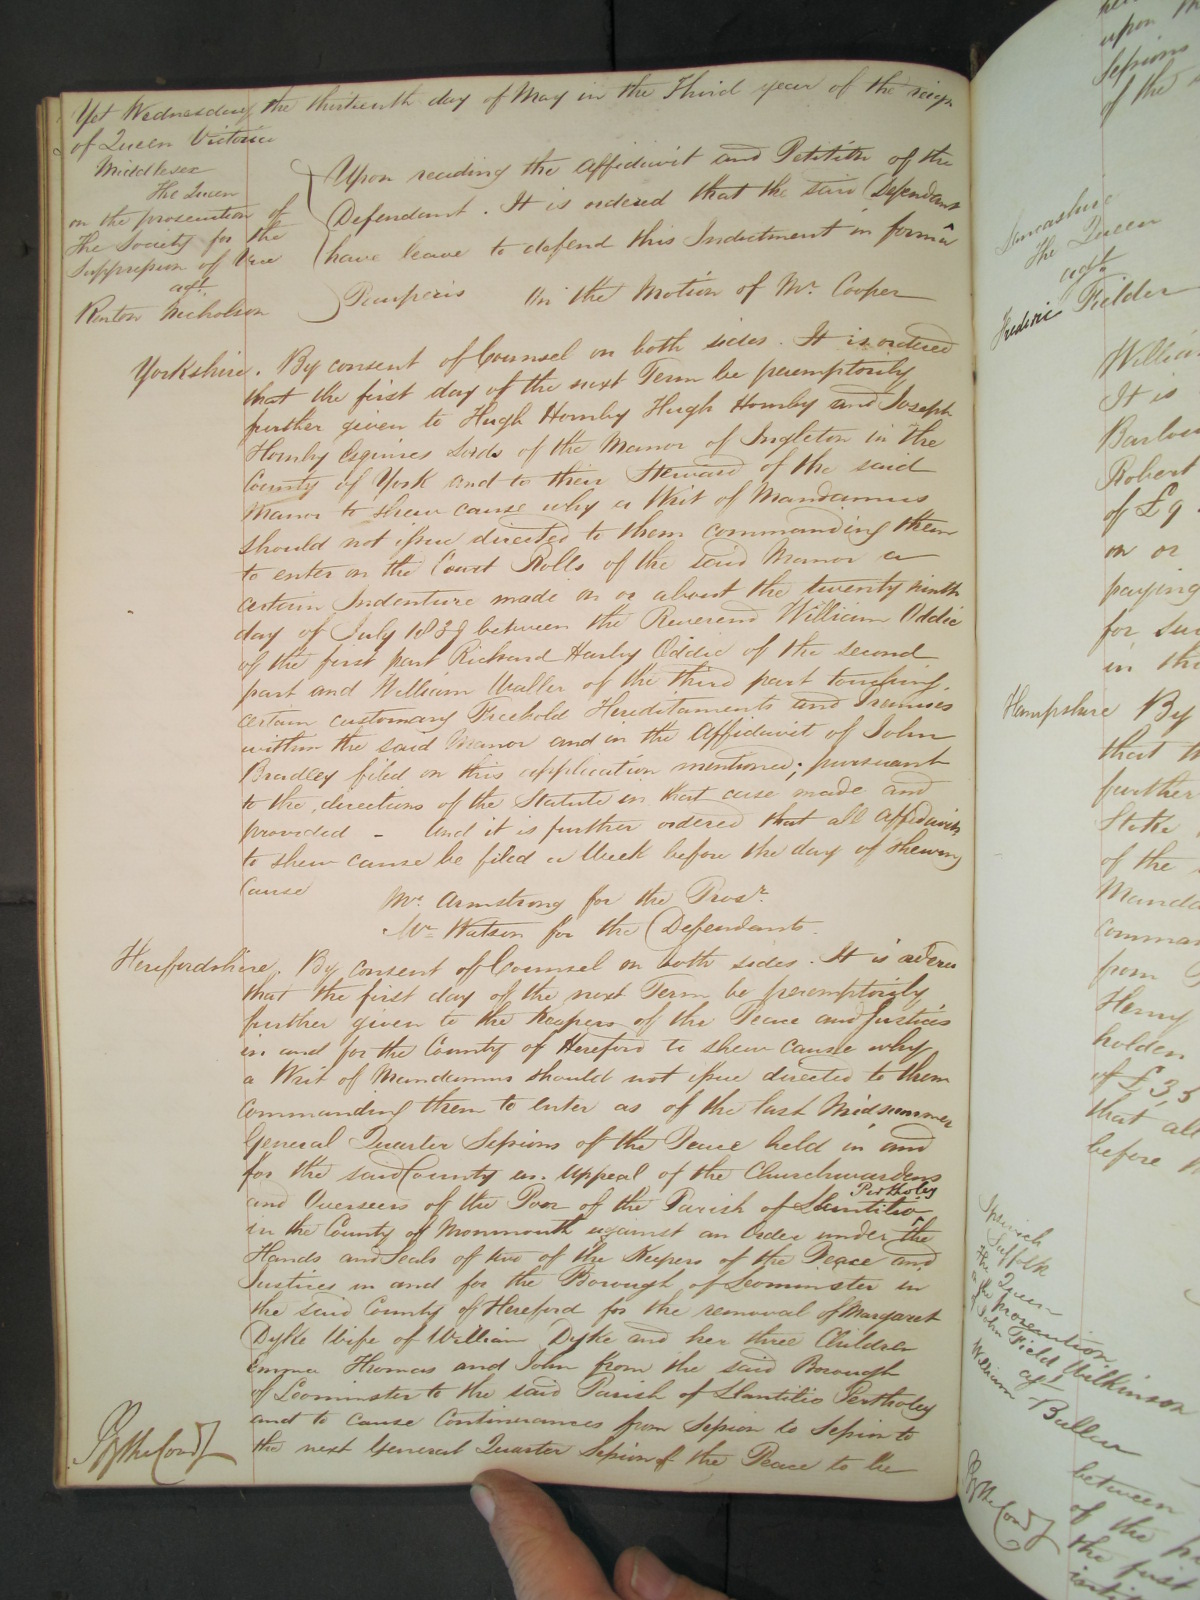 Yet Wednesday the thirteenth day of May in the Third year of the reign
of Queen Victoria
Middlesex
The Queen
on the prosecution of
the Society for the
Suppression of Vice
agt
Renton Nicholson
Upon reading the affidavit and Petition of the
Defendant. It is ordered that the said Defendant
have leave to defend this Indictment in formâ
Pauperis On the Motion of Mr. Cooper
Yorkshire. By consent of Counsel on both sides. It is ordered
that the first day of the next Term be peremptorily
further given to Hugh Hornby Hugh Hornby and Joseph
Hornby Esquires Lords of the Manor of Ingleton in the
County of York and to their Steward of the said
Manor to shew cause why a Writ of Mandamus
should not issue directed to them commanding them
to enter on the Court Rolls of the said Manor a
certain Indenture made on or about the twenty ninth
day of July 1839 between the Reverend William Oddie
of the first part Richard Hartley Oddie of the second
part and William Waller of the third part touching
certain customary Freehold Hereditaments and Premises
within the said Manor and in the Affidavit of John
Bradley filed on this application mentioned; pursuant
to the directions of the Statute in that case made and
provided - And it is further ordered that all affidavits
to shew cause be filed a Week before the day of shewing
Cause
Mr. Armstrong for the Prosr.
Mr. Watson for the Defendants.
Herefordshire. By consent of Counsel on both sides. It is ordered
that the first day of the next Term be peremptorily
further given to the Keepers of the Peace and Justices
in and for the County of Hereford to shew cause why
a Writ of Mandamus should not issue directed to them
commanding them to enter as of the last Midsummer
General Quarter Sessions of the Peace held in and
for the said County an Appeal of the Churchwardens
and Overseers of the Poor of the Parish of Llantilio Pertholey
in the County of Monmouth against an Order under the
Hands and Seals of two of the Keepers of the Peace and
Justices in and for the Borough of Leominster in
the said County of Hereford for the removal of Margaret
Dyke Wife of William Dyke and her three Children
Emma Thomas and John from the said Borough
of Leominster to the said Parish of Llantilio Pertholey
and to cause Continuances from Session to Session to
the next General Quarter Session of the Peace to be
By the Court
upon
Sessions
of the
Lancashire
The Queen
agt.
Frederic Fielder
William
It is
Barlow
Robert
of £9
on or
paying
for
in the
Hampshire By
that
further
Stoke
of the
from
Henry
holden
of £3,5
that all
before
Ipswich
Suffolk
The Queen
on the prosecution
of John Field Wilkinson
agt
William Buller
By the Court
between
of the
the first